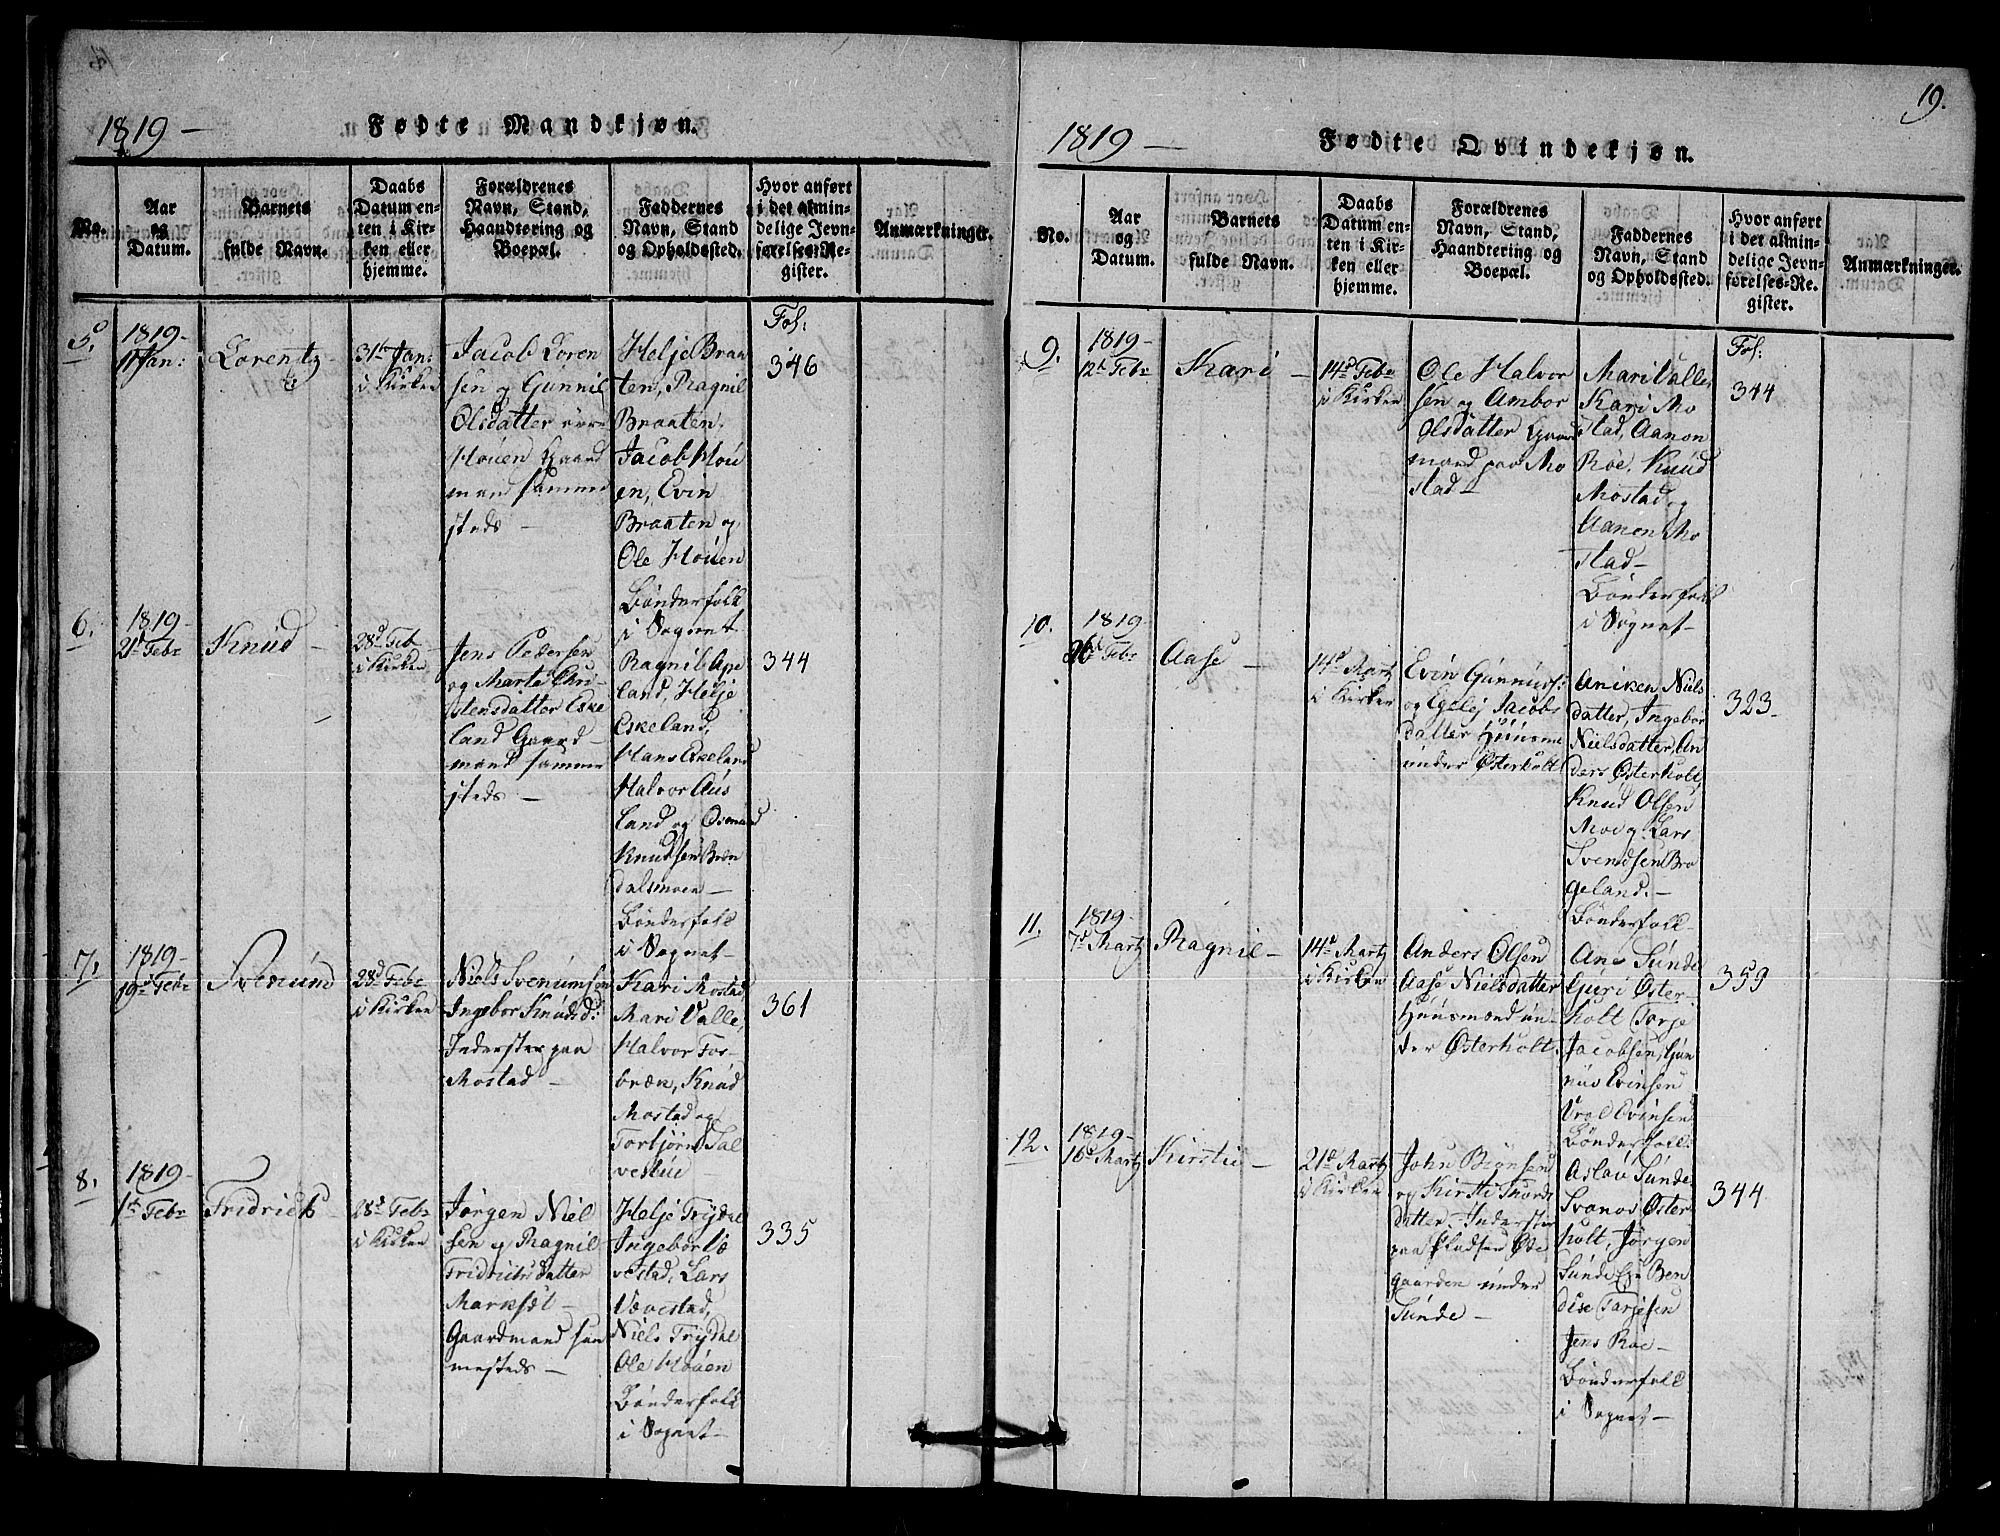 19.
1819 –
Fødte Mandkjøn.
No.
Aar og Datum.
Barnets fulde Navn.
Daabs Datum enten i Kirken eller hjemme.
Forældrenes Navn, Stand, Haandtering og Boepæl.
Faddernes Navn, Stand og Opholdssted.
Hvor anført i det almindelige Jevnførelses-Register.
Anmærkninger.
5.
1819–
11 Jan:
Lorentz
31te Jan:
i Kirken
Jacob Loren
sen og Gunnil
Olsdatter
Houen Gaard
mand samme
steds –
Helje Braa
ten, Ragnil
Braaten,
Jacob Hou
en, Evin
Braaten og
Ole Houen
Bønderfolk
i Sognet
Fol:
346
6.
1819–
21 Febr
Knud –
28d Feb–
i Kirken
Jens Pedersen
og Marte Chri-
stensdatter Eske
land Gaard–
mand samme
steds –
Ragnil
land, Helje
Eskeland,
Hans Eskeland
Halvor Aus
land og Osmund
Knudsen Bræn
dalsmoen –
Bønderfolk
i Sognet–
344
7.
1819–
19de Febr
Svenund
28d Febr
i Kirken
Niels Svenumsen
Ingebor Knudsd:
Inderster paa
Mostad –
Kari Mostad
Mari Valle,
Halvor Tor-
bræk, Knud
Mostad og
Torbjørn Sal
veskue
361
8.
1819–
1te Febr
Fridrich –
28d Febr
i Kirken
Jørgen Niel
sen og Ragnil
Fridrichsdatter
Marksæt –
Gaardmand sam
mesteds –
Helje Trydal
Ingebor Væ
vestad, Lars
Vævestad,
Niels Trydal
Ole Houen
Bønderfolk
i Sognet –
335
1819 –
Fødte Qvindekjøn.
No.
Aar og Datum.
Barnets fulde Navn.
Daabs Datum enten i Kirken eller hjemme.
Forældrenes Navn, Stand, Haandtering og Boepæl.
Faddernes Navn, Stand og Opholdssted.
Hvor anført i det almindelige Jevnførelses-Register.
Anmærkninger.
9.
1819–
12te Febr
Kari –
14d Febr
i Kirken
Ole Halvor
sen og Ambor
Olsdatter Gaard
mand paa Mo
stad –
Mari Valle,
Kari Mo
stad, Aanon
Röe, Knud
Mostad og
Aanen Mo
stad –
Bønderfolk
i Sognet –
Fol:
344
10.
1819–
26 Febr
Aase –
14d Martz
i Kirken
Evin Gunnufs:
og Egelej Jacobs
datter Huusm
under Østerholt
Aniken Niels
datter, Ingebor
Nielsdatter, An
ders Østerholt,
Knud Olsen
Moe og Lars
Svendsen Bro
geland. –
Bønderfolk
323–
11.
1819–
7d Martz
Ragnil –
14d Martz
i Kirken
Anders Olsen
Aase Nielsdatter
Huusmand un-
der Østerholt.
Ane Sunde
Guri Øster-
holt Torje
Jacobsen, Gun
nuv Evinsen
Evinsen
Bønderfolk
359
12.
1819–
16d Martz
Kirsti –
21d Martz
i Kirken
John Biønsen
og Kirsti Thords
datter – Inderster
paa Pladsen Øde
gaarden under
Sunde –
Aslav Sunde
Svanos Øster
holt, Jørgen
Sunde Ben
dixe Tarjesen
Jens Roe –
Bønderfolk
i Sognet –
344